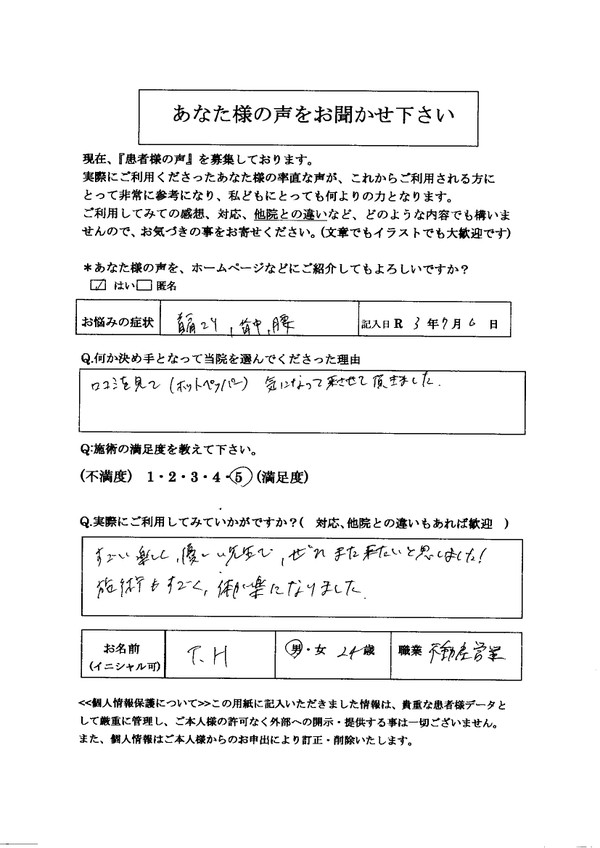 あなた様の声をお聞かせ下さい
現在、『患者様の声』を募集しております。
実際にご利用くださったあなた様の率直な声が、これからご利用される方に
とって非常に参考になり、私どもにとっても何よりの力となります。
ご利用してみての感想、対応、他院との違いなど、どのような内容でも構いま
せんので、お気づきの事をお寄せください。(文章でもイラストでも大歓迎です)
*あなた様の声を、ホームページなどにご紹介してもよろしいですか?
☑ はい □ 匿名
お悩みの症状 肩コリ, 背中, 腰 記入日 R 3 年 7 月 6 日
Q.何か決め手となって当院を選んでくださった理由
口コミを見て (ホットペッパー) 気になって来させて頂きました.
Q:施術の満足度を教えて下さい。
(不満度) 1・2・3・4・5 (満足度)
Q.実際にご利用してみていかがですか?( 対応、他院との違いもあれば歓迎 )
すごい楽しく, 優しい先生で, ぜひまた来たいと思いました!
施術もすごく, 体が楽になりました.
お名前 T.H 男・女 24歳 職業 不動産営業
(イニシャル可)
<<個人情報保護について>>この用紙に記入いただきました情報は、貴重な患者様データと
して厳重に管理し、ご本人様の許可なく外部への開示・提供する事は一切ございません。
また、個人情報はご本人様からのお申出により訂正・削除いたします。